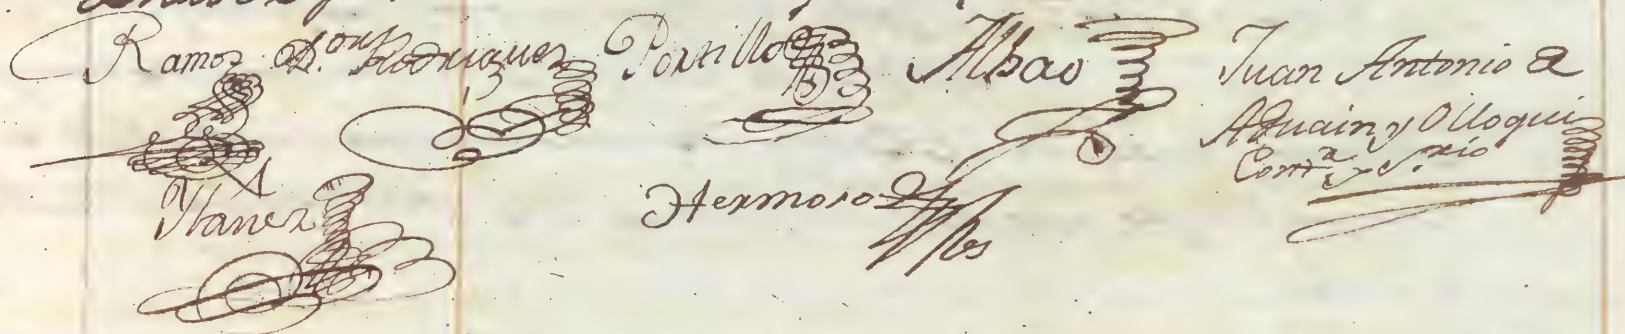 Ramos Dor. Rodriguez Portillo Albao Juan Antonio a
Aduain y Olloqui
Contr.a y S.rio
Ybanez Hermoso